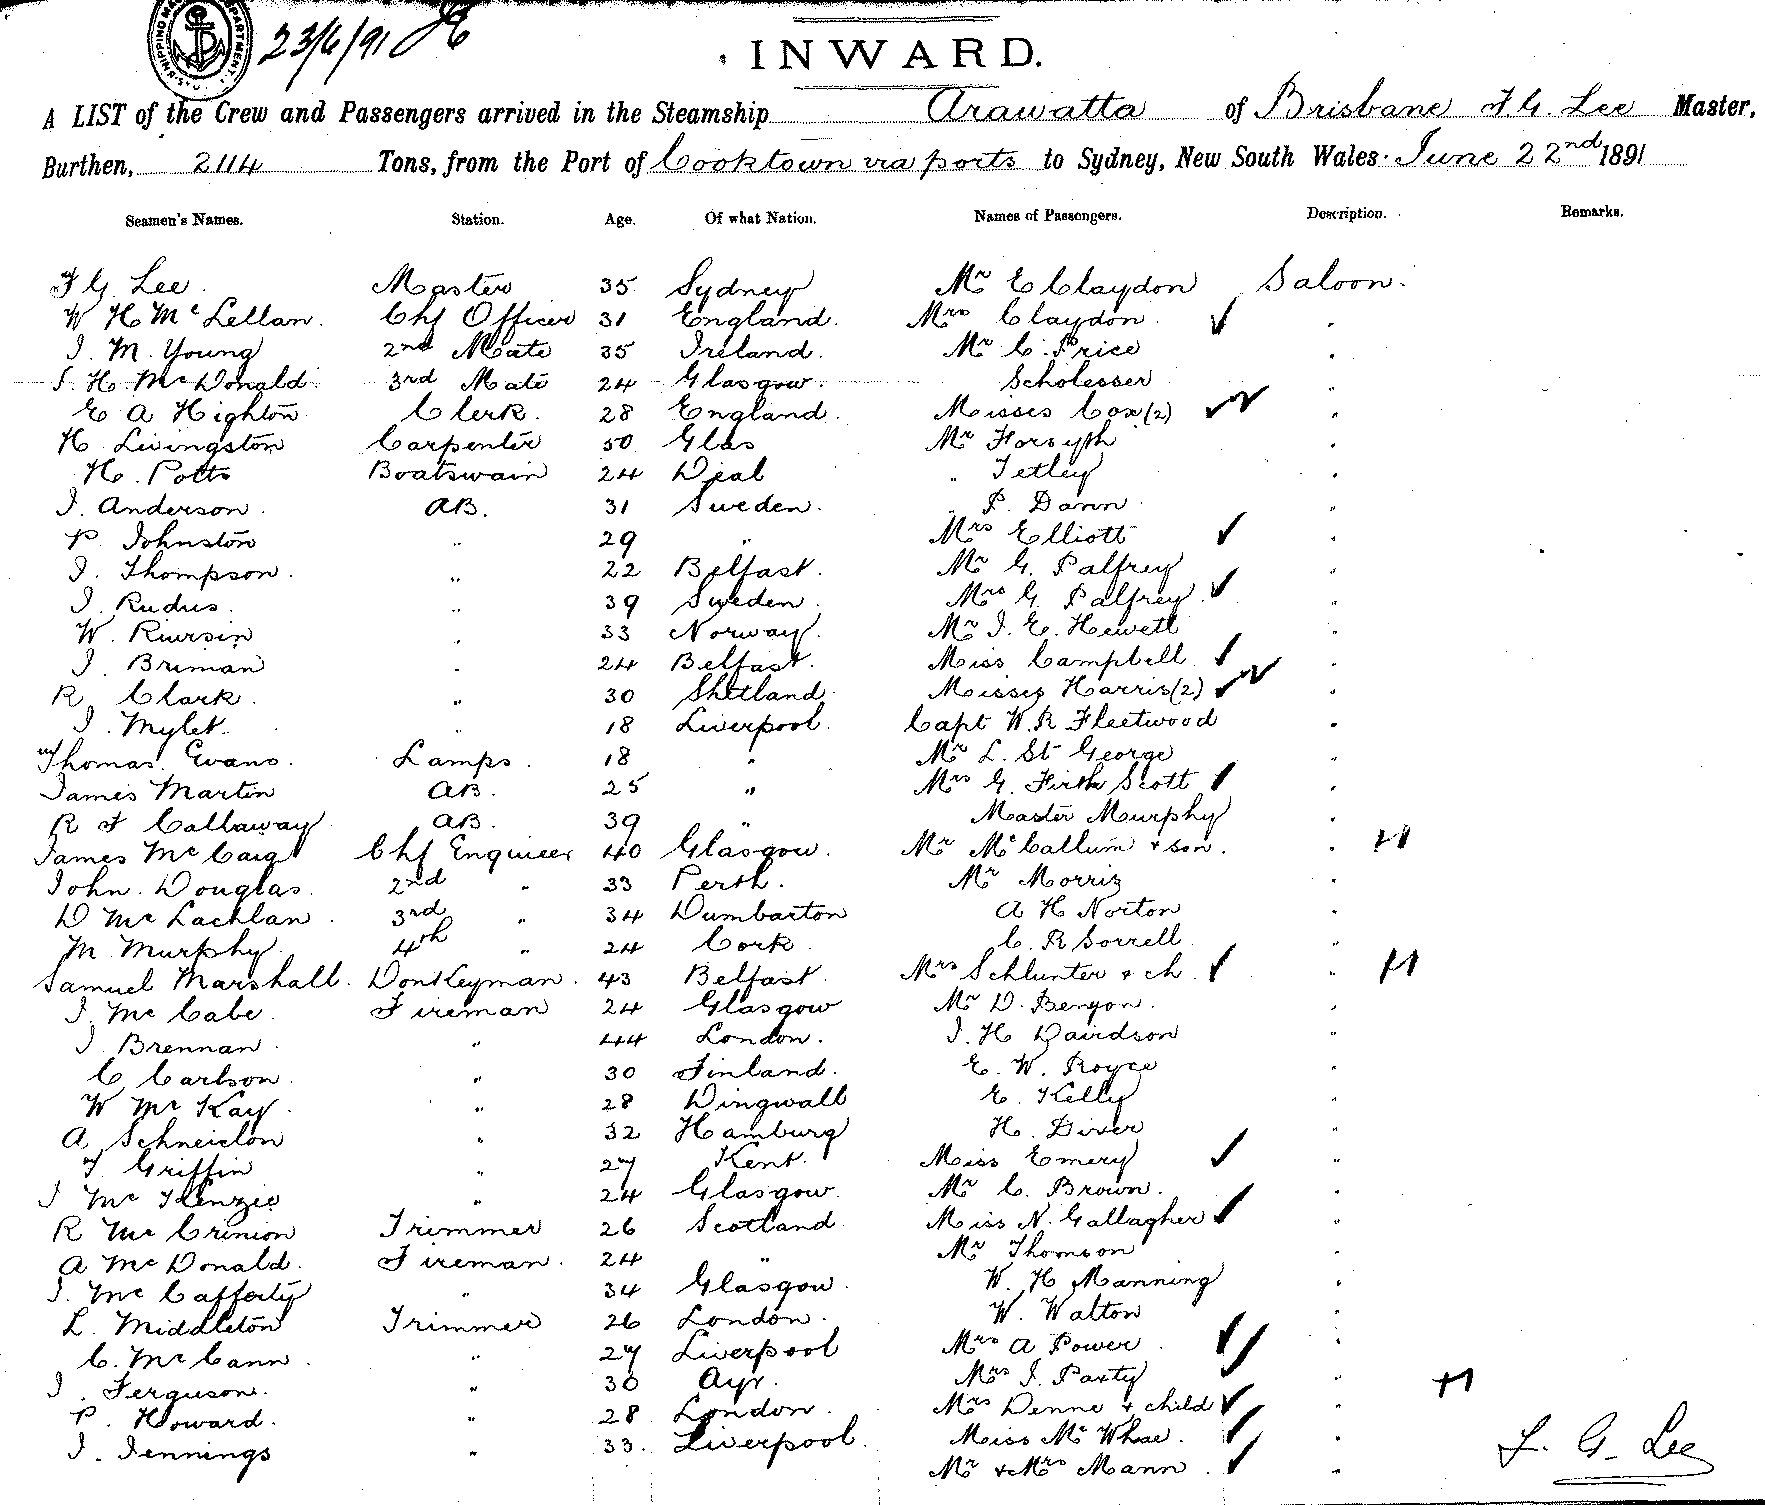 23/6/91
INWARD.
A LIST of the Crew and Passengers arrived in the Steamship Arawatta of Brisbane F. G. Lee Master,
Burthen, 2114 Tons, from the Port of Cooktown via ports to Sydney, New South Wales. June 22nd 1891
Seamen's Names. Station. Age. Of what Nation. Names of Passengers. Description. Remarks.
F G Lee Master 35 Sydney Mr E Claydon Saloon.
W H Mc Lellan. Chf Officer 31 England. Mrs Claydon "
J. M. Young 2nd Mate 35 Ireland. Mr C. Price "
J. H. McDonald. 3rd Mate 24 Glasgow. Scholesser "
E A Highton Clerk. 28 England. Misses Cox (2) "
H Livingston Carpenter 50 Glas Mr Forsyth "
H. Potts Boatswain 24 Deal " Tetley "
J. Anderson. AB. 31 Sweden. " P. Dann "
P. Johnston " 29 " Mrs Elliott "
J. Thompson. " 22 Belfast. Mr G. Palfrey "
J. Rudus. " 39 Sweden. Mrs G. Palfrey "
W. " 33 Norway. Mr J. E. Hewett "
J. Briman " 24 Belfast. Miss Campbell "
R Clark. " 30 Shetland. Misses Harris (2) "
J. Mylet. " 18 Liverpool. Capt W. R Fleetwood "
Thomas. Evans. Lamps. 18 " Mr L. St George "
James Martin AB. 25 " Mrs G. Firth Scott "
R F Callaway AB. 39 " Master Murphy "
James McCaig Chf Engineer 40 Glasgow. Mr McCallum & son. "
John. Douglas. 2nd " 33 Perth. Mr Morris "
D Mc Lachlan. 3rd " 34 Dumbarton A H Norton "
M Murphy. 4th " 24 Cork. C. R Sorrell "
Samuel Marshall. Donkeyman. 43 Belfast. Mrs Schlunter & ch. "
J. McCabe. Fireman 24 Glasgow Mr D. Benyon. "
J. Brennan. " 44 London. J. H Davidson "
C Carlson. " 30 Finland. E. W. Royce "
W McKay. " 28 Dingwall E. Kelly "
A Schneidon " 32 Hamburg H. Diver "
F Griffin " 27 Kent. Miss Emery "
J McKenzie " 24 Glasgow. Mr C. Brown. "
R McCrinion Trimmer 26 Scotland. Miss N. Gallagher "
A McDonald. Fireman. 24 " Mr Thomson "
J. McCafferty " 34 Glasgow. W. H Manning "
L. Middleton Trimmer 26 London. W. Walton "
C. McCann. " 27 Liverpool Mrs A Power "
J. Ferguson. " 30 Ayr. Mrs J. Party "
P. Howard. " 28 London. Mrs Denne & child "
J. Jennings " 33. Liverpool. Miss McWhae. "
Mr & Mrs Mann. "
F. G. Lee